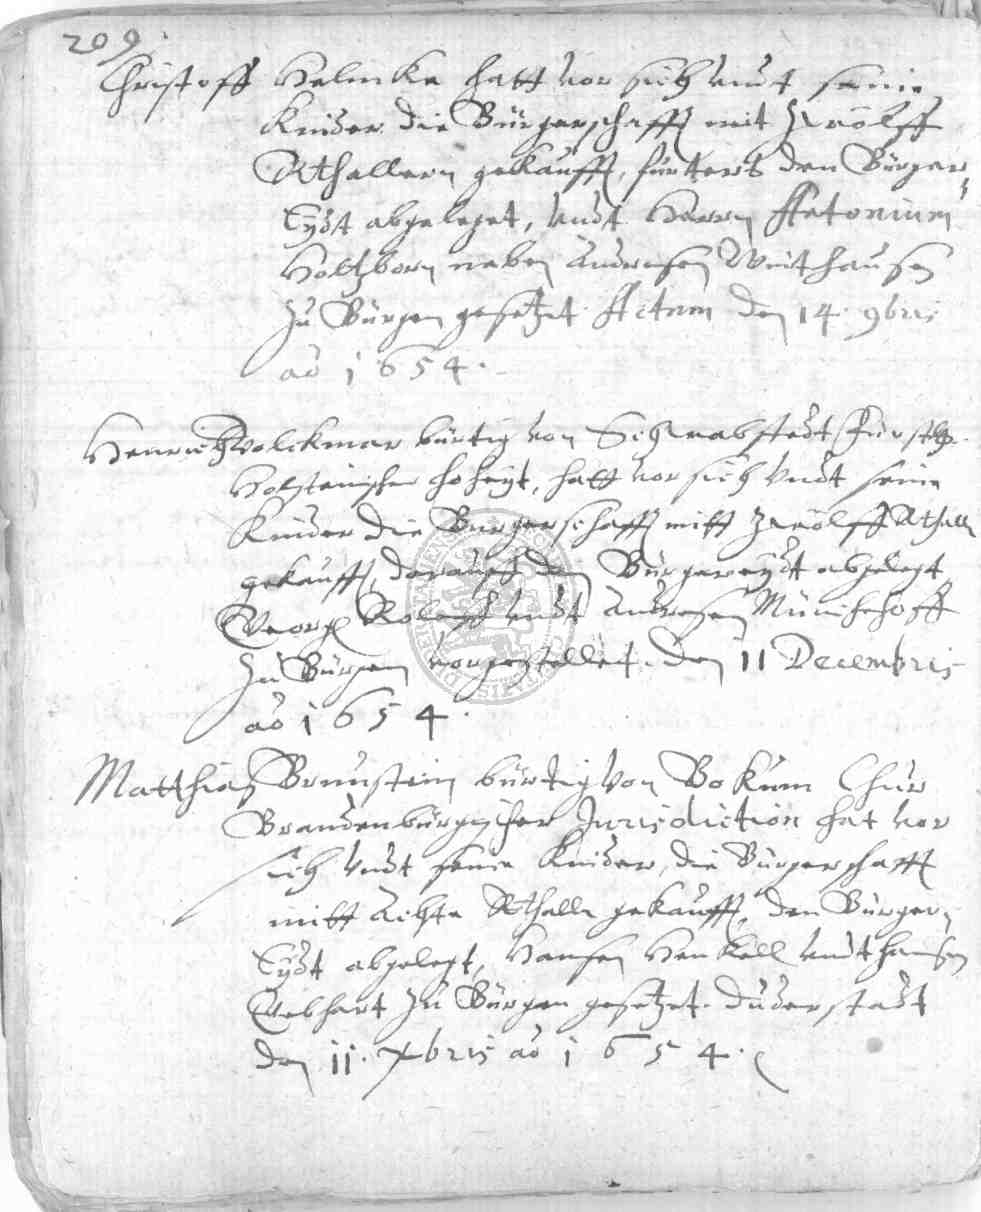 209.
Christoff Helmke hatt vor sich undt seine
Kinder die Bürgerschafft mit Zwölff
Rthallern gekaufft, furters den Bürger
Eydt abgeleget, undt Herrn Antonium
Holtzborn neben Andresen Weithausen
zu Bürgen gesetzet. Actum den 14. 9bris
ao 1654.
Henrich Volckmar bürtig von Schwabstedt Fürstl.
Holsteinischer hoheyt, hatt vor sich undt seine
Kinder die Burgerschafft mitt Zwölff Rthall
gekaufft, darauff den Bürgereydt abgelegt
Georg undt Andresen Münchehoff
zu Bürgen vorgestellet. den 11 Decembris
ao 1654.
Matthias Brunstein bürtig von Bokum Chur
Brandenbürgischer Jurisdiction hat vor
sich undt seine Kinder, die Bürgerschafft
mitt Achte Rthalle gekaufft, den Bürger
Eydt abgelegt, Hansen Henkell undt Hansen
Gebhart zu Bürgen gesetzet. Duderstadt
den 11. Xbris ao 1654.